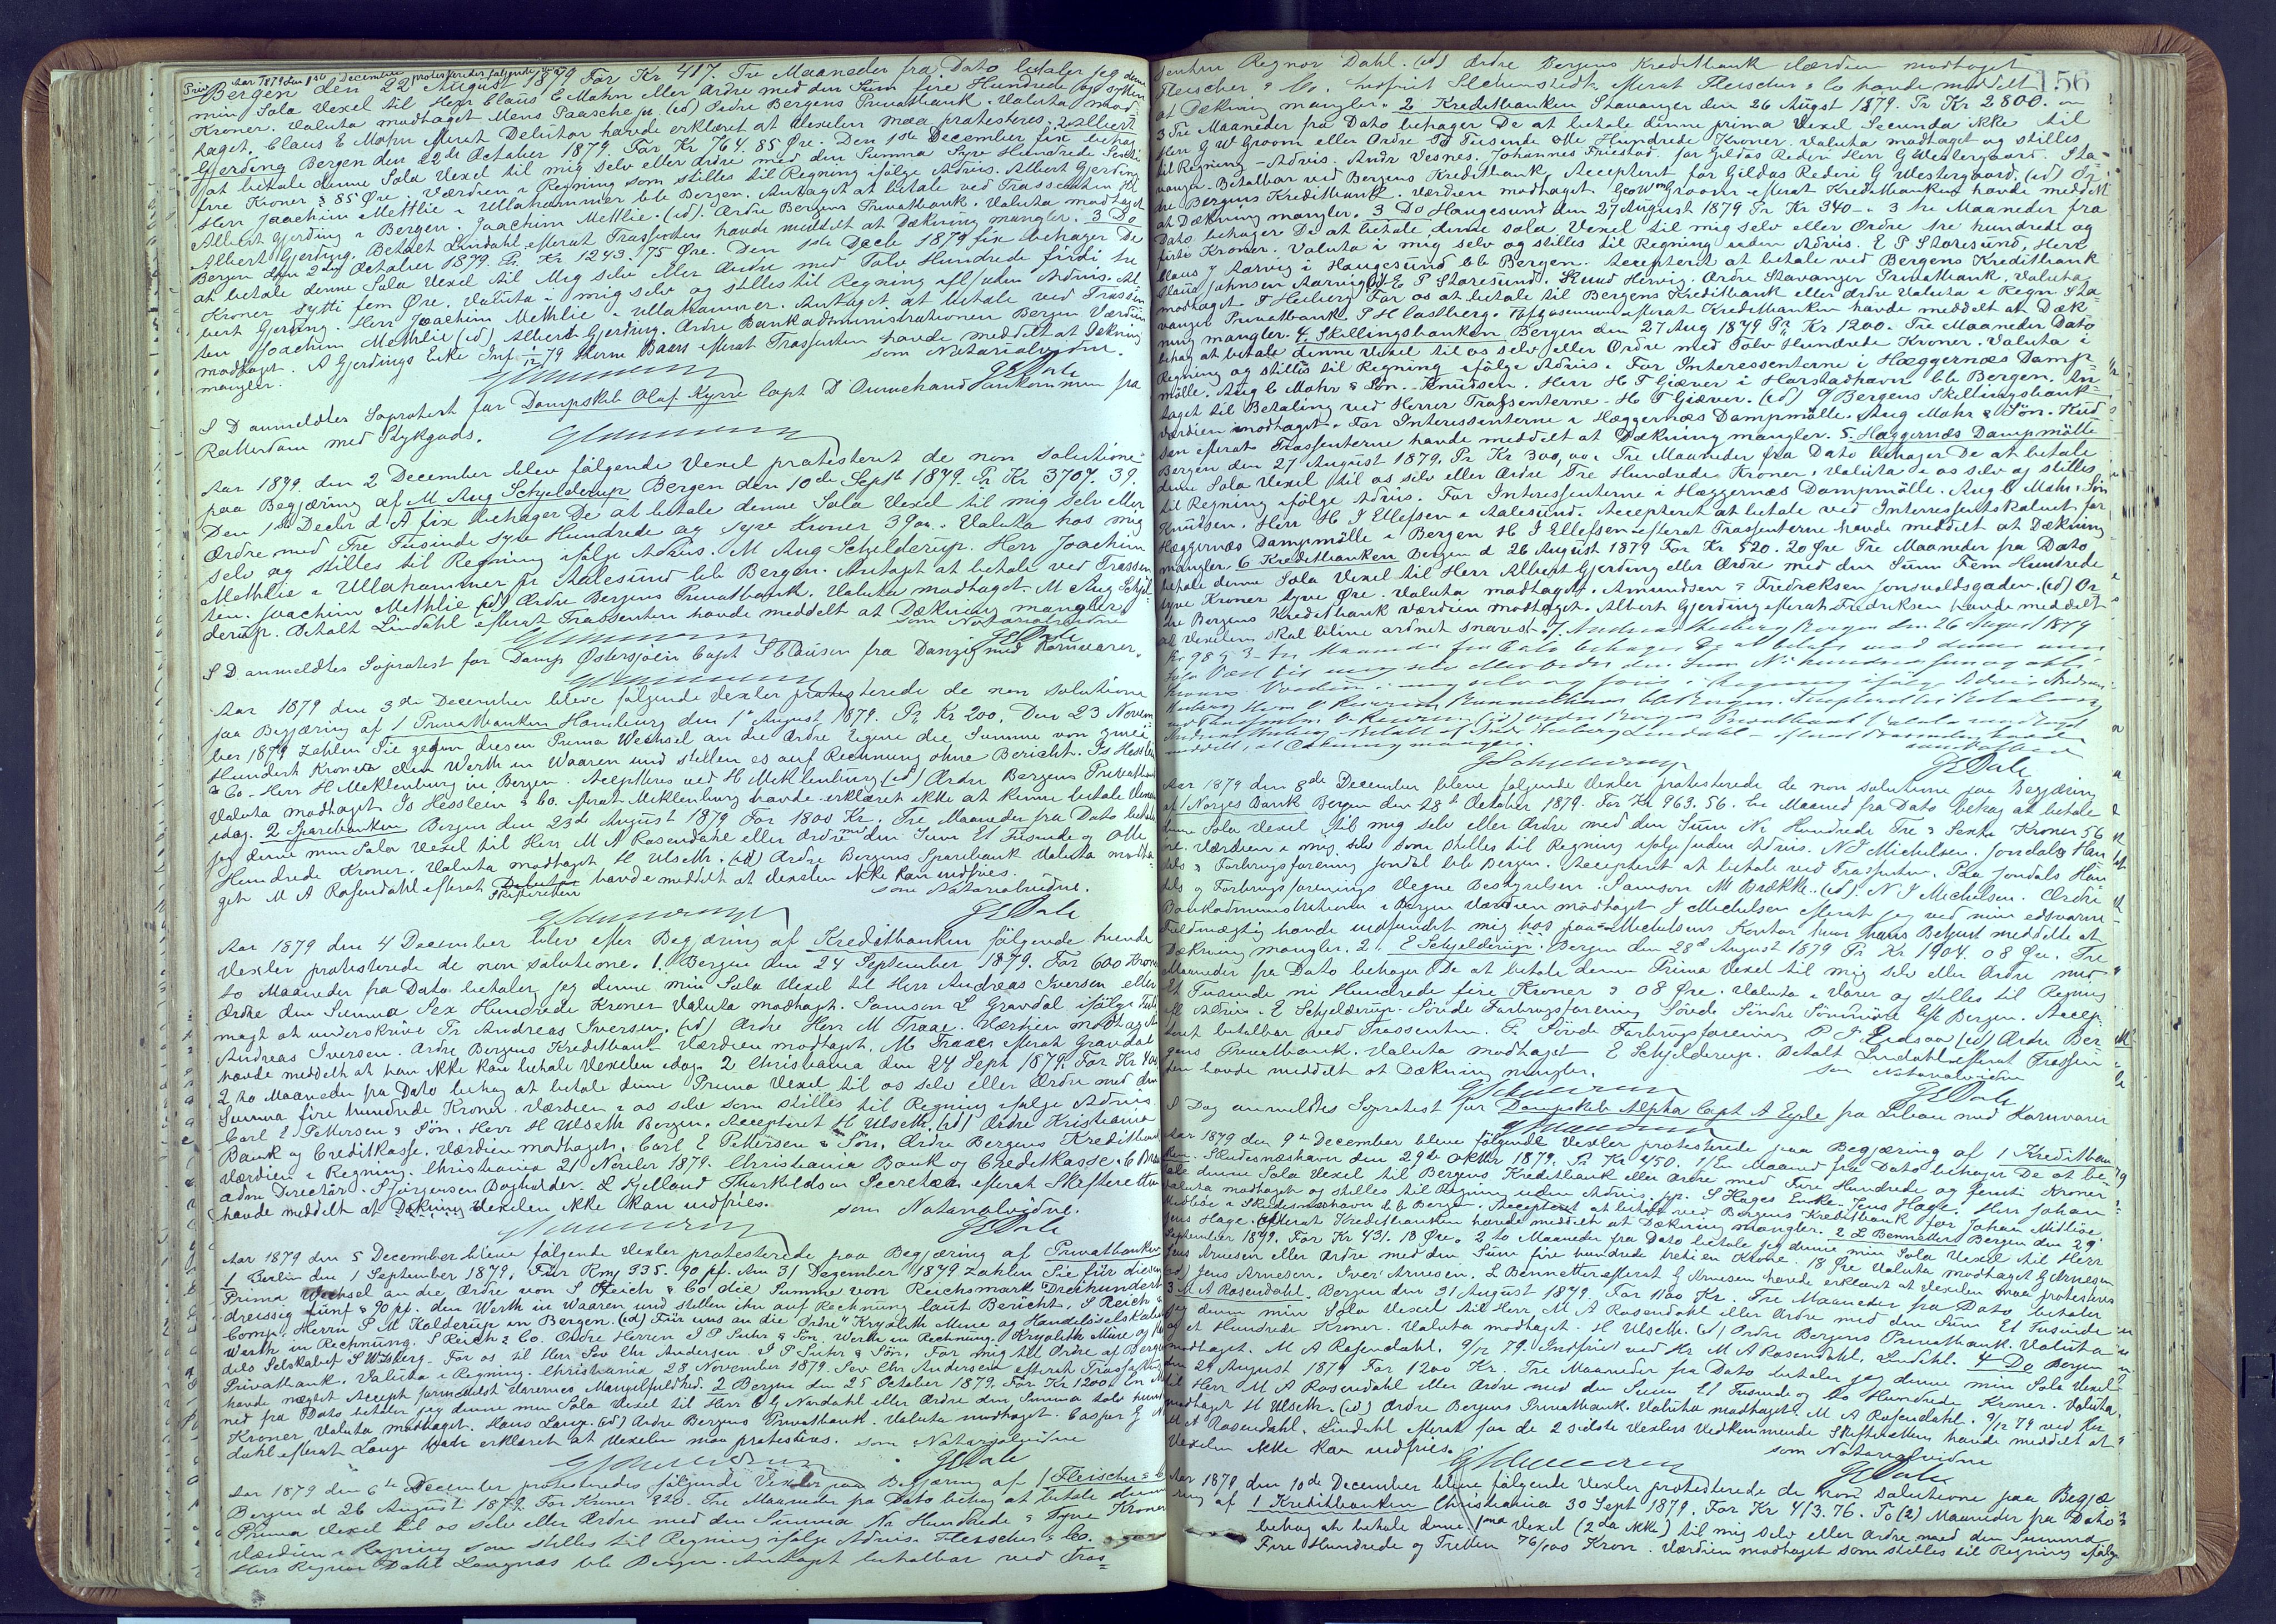 Aar 1879 den 1ste December protesteredes følgende
Bergen den 22 August 1879 For Kr 417. Tre Maaneder fra Dato betaler jeg denne
min Sola Vexel til Herr Claus E Mohn eller Ordre med den Sum fire Hundrede og sytten
Kroner. Valuta modtaget Mens Paasche jr. (ed) Ordre Bergens Privatbank. Valuta mod-
taget. Claus E Mohn efterat Debitor havde erklæret at Vexelen maa protesteres. 2 Albert
Gjerding Bergen den 22de October 1879. For Kr 764. 85 Øre. Den 1ste December fix behag
at betale denne Sola Vexel til mig selv eller Ordre med den Summa Syv Hundrede Sexti
fire Kroner & 85 Øre. Værdien i Regning som stilles til Regning ifølge Advis. Albert Gjerding
Herr Joachim Methlie i Ullahammer bb Bergen. Antaget at betale ved Trassenten Hr
Albert Gjerding i Bergen. Joachim Methlie. (ed). Ordre Bergens Privatbank. Valuta modtaget
Albert Gjerding. Betalt Lindahl efterat Trassenten havde meddelt at Dækning mangler. 3 Do
Bergen den 2den October 1879. Pr Kr 1243. 75 Øre. Den 1ste Decbr 1879 fix behager De
at betale denne Sola Vexel til Mig selv eller Ordre med Tolv Hundrede firti tre
Kroner sytti fem Øre. Valuta i mig selv og stilles til Regning ifl/uden Advis. Al-
bert Gjerding. Herr Joachim Methlie i Ullahammer. Antaget at betale ved Trassen
ten Joachim Methlie (ed) Albert Gjerding. Ordre Bankadministrationen Bergen Værdien
modtaget. A Gjerdings Enke Inf. 1/12 79 Herne Baars efterat Trassenten havde meddelt at Dækning
mangler. som Notarialvidne.
G E Dale
I D anmeldtes Søprotest for Dampskib Olaf Kyrre Capt D Ounvehand ankommen fra
Rotterdam med Stykgods.
Aar 1879 den 2 December blev følgende Vexel protesteret de non solutione
paa Begjæring af M Aug Schjelderup Bergen den 10de Septb 1879. Pr Kr 3707. 39.
Den 1ste Decbr d A fix behager De at betale denne Sola Vexel til mig selv eller
Ordre med Tre Tusinde syv Hundrede og syv Kroner 39 Ør. Valuta hos mig
selv og stilles til Regning ifølge Advis. M Aug Schjelderup. Herr Joachim
Methlie i Ullahammer pr Aalesund bb Bergen. Antaget at betale ved Trassen
ten. Joachim Methlie (ed) Ordre Bergens Privatbank. Valuta modtaget. M Aug Schjel-
derup. Betalt Lindahl efterat Trassenten havde meddelt at Dækning mangler
som Notarialvidne
G E Dale
I D. anmeldtes Søprotest for Damp Østersjøen Capt S Clausen fra Danzig med Kornvarer.
Aar 1879 den 3de December bleve følgende Vexler protesterede de non solutione
paa Begjæring af 1 Privatbanken Hamburg den 1 August 1879. Pr Kr 200. Den 23 Novem
ber 1879 zahlen Sie gegen diesen Prima Wechsel an die Ordre Eigene die Summe von zwei
Hundert Kroner den Werth in Waaren und stellen es auf Rechnung ohne Bericht. Is Hesslein
& Co. Herr H Meklenburg in Bergen. Accepteres ved H Meklenburg (ed) Ordre Bergens Privatbank
Valuta modtaget Is Hesslein & Co. efterat Meklenburg havde erklæret ikke at kunne betale Vexelen
idag. 2 Sparebanken Bergen den 23de August 1879 For 1800 Kr. Tre Maaneder fra Dato betaler
jeg denne min Sola Vexel til Herr M A Rosendahl eller Ordre med den Sum Et Tusinde og Otte
Hundrede Kroner. Valuta modtaget H Ulseth. (ed) Ordre Bergens Sparebank Valuta modta-
get M A Rosendahl efterat Debitor Skifteretten havde meddelt at Vexelen ikke kan indfries.
som Notarialvidne.
G E Dale
Aar 1879 den 4 December blev efter Begjæring af Kreditbanken følgende tvende
Vexler protesterede de non solutione. 1. Bergen den 24 September 1879. For 600 Kroner
to Maaneder fra Dato betaler jeg denne min Sola Vexel til Herr Andreas Iversen eller
Ordre den Summa Sex Hundrede Kroner Valuta modtaget. Samson L Gravdal ifølge Fuld
magt at underskrive Fr Andreas Iversen. (ed) Ordre Herr M Traae. Værdien modtaget
Andreas Iversen. Ordre Bergens Kreditbank Værdien modtaget. M Traae efterat Gravdal
havde meddelt at han ikke kan betale Vexelen idag. 2 Christiania den 24 Sept 1879. For Kr 400
2 to Maaneder fra Dato behag at betale denne Prima Vexel til os selv eller Ordre med den
Summa fire hundrede Kroner. Værdien i os selv som stilles til Regning ifølge Advis
Carl E Pettersen & Søn. Herr H Ulseth Bergen. Accepteret H Ulseth. (ed) Ordre Kristiania
Bank og Creditkasse. Værdien modtaget. Carl E Pettersen & Søn. Ordre Bergens Kreditbank
Værdien i Regning. Christiania 21 Novbr 1879. Christiania Bank og Creditkasse. C Brun
adm Directør. S Jørgensen Bogholder. L Kielland Thorkildsen Secretær efterat Skifteretten
havde meddelt at Dækning Vexelen ikke kan indfries. som Notarialvidne.
G E Dale
Aar 1879 den 5 December bleve følgende Vexler protesterede paa Begjæring af Privatbanken
1 Berlin den 1 September 1879. Für Rmj 335. 90 pf. Am 31 Dezember 1879 zahlen Sie für diesen
Prima Wechsel an die Ordre von S Reich & Co die Summe von Reichsmark Dreihundert
dreissig fünf & 90 pf. den Werth in Waaren und stellen ihn auf Rechnung laut Bericht. S Reich &
Comp. Herrn S M Kolderup in Bergen. (ed) Für uns an die Ordre "Kryolith Mine og Handelsselskabet
Werth in Rechnung. S Reich & Co. Ordre Herren I P Suhr & Søn. Werth in Rechnung. Kryolith Mine og Han
dels Selskabet S Weisberg. For os til Herr Sov Chr Andersen. I P Suhr & Søn. For mig til Ordre af Bergens
Privatbank. Valuta i Regning. Christiania 28 November 1879. Sov Chr Andersen efterat Trassaten
havde nægtet Accept formedelst Varernes Mangelfuldhed. 2 Bergen den 25 October 1879. For Kr 1200 En Maa
ned fra Dato betaler jeg denne min Sola Vexel til Herr C G Nordahl eller Ordre den Summa tolv hundrede
Kroner Valuta modtaget. Hans Lange. (ed) Ordre Bergens Privatbank. Valuta modtaget. Casper G N
dahl efterat Lange havde erklæret at Vexelen maa protesteres. som Notarialvidne
G E Dale
Aar 1879 den 6te December protesteredes følgende Vexler paa Begjæring af 1 Fleischer & Co
Bergen d 26 August 1879. For Kroner 920. Tre Maaneder fra Dato behag at betale denne
Prima Vexel til os selv eller Ordre med den Summa Ni Hundrede & Tyve Kroner
Værdien i Regning som stilles til Regning ifølge Advis. Fleischer & Co.
Herr Regnor Dahl Langnæs bb Bergen. Antaget betalbar ved Tras-
156
senten Regnor Dahl. (ed) Ordre Bergens Kreditbank Værdien modtaget
Fleischer & Co. efterat Fleischer & Co havde meddelt
at Dækning mangler. 2 Kreditbanken Stavanger den 26 August 1879. Pr Kr 2800.
3 Tre Maaneder fra Dato behager De at betale denne prima Vexel Secunda ikke til
Herr G W Groom eller Ordre To Tusinde Otte Hundrede Kroner. Valuta modtaget og stilles
til Regning - Advis. Andr Vesnes. Johannes Friestad. for Gildas Rederi Herr G Westergaard. Sta-
vanger. Betalbar ved Bergens Kreditbank, Accepteret for Gildas Rederi G Westergaard. (ed) Or-
dre Bergens Kreditbank. Værdien modtaget. Geo Wm Groom efterat Kreditbanken havde meddelt
at Dækning mangler. 3 Do Haugesund den 27 August 1879 Pr Kr 340 -. 3 tre Maaneder fra
Dato behager De at betale denne sola Vexel til mig selv eller Ordre tre hundrede og
firti Kroner. Valuta i mig selv og stilles til Regning uden Advis. E P Storesund. Herr
Claus J Aarvig i Haugesund bb Bergen. Accepteret at betale ved Bergens Kreditbank
Claus Johnsen Aarvig (ed) E P Storesund. Knud Hervig. Ordre Stavanger Privatbank. Valuta
modtaget T Heiberg. For os at betale til Bergens Kreditbank eller Ordre Valuta i Regn. Sta-
vanger Privatbank. P H Castberg. efterat Kreditbanken havde meddelt at Dæk-
ning mangler. 4. Skillingsbanken Bergen den 27 Aug 1879 Pr Kr 1200. Tre Maaneder Dato
behag at betale denne Vexel til os selv eller Ordre med Tolv Hundrede Kroner. Valuta i
Regning og stilles til Regning ifølge Advis. For Interessenterne i Hæggernæs Damp-
mølle. Aug C Mohr & Søn. Knudsen. Herr H T Giæver i Harstadhavn bb Bergen. An-
taget til Betaling ved Herrer Trassenterne. H T Giæver. (ed) Bergens Skillingsbank
Værdien modtaget. For Interessenterne i Hæggernæs Dampmølle. Aug Mohr & Søn. Knud-
sen efterat Trassenterne havde meddelt at Dækning mangler. 5. Hæggernæs Dampmølle
Bergen den 27 August 1879. Pr Kr 300,00. Tre Maaneder fra Dato behager De at betale
denne Sola Vexel til os selv eller Ordre Tre Hundrede Kroner. Valuta i os selv og stilles
til Regning ifølge Advis. For Interessenterne i Hæggernæs Dampmølle. Aug C Mohr & Søn
Knudsen. Herr H J Ellefsen i Aalesund. Accepteret at betale ved Interessentskabet for
Hæggernæs Dampmølle i Bergen H J Ellefsen efterat Trassenterne havde meddelt at Dækning
mangler. 6 Kreditbanken Bergen d 26 August 1879 For Kr 520. 20 Øre Tre Maaneder fra Dato
betale denne Sola Vexel til Herr Albert Gjerding eller Ordre med den Sum Fem Hundrede
tyve Kroner tyve Øre. Valuta modtaget. Amundsen & Fredriksen Jonsvoldsgaden. (ed) Or
dre Bergens Kreditbank Værdien modtaget. Albert Gjerding efterat Fredriksen havde meddelt
at Vexelen skal blive ordnet snarest. 7. Andreas Heiberg Bergen den 26 August 1879
Kr 985 3 - tre Maaneder fra Dato behager De at betale mod denne min
Sola Vexel til mig selv eller Ordre den Sum Ni hundrede fem og otti
Kroner. Værdien i mig selv og føres i Regning ifølge Advis Andreas
Heiberg
Privatbank Valuta modtaget
Andreas Heiberg Betalt Lindahl - efterat Trassenten havde
meddelt, at Dækning mangler.
G E Dale
Aar 1879 den 8de December bleve følgende Vexler protesterede de non solutione paa Begjæring
af 1 Norges Bank Bergen den 28de October 1879. For Kr 963. 56. En Maaned fra Dato behag at betale
denne Sola Vexel til mig selv eller Ordre med den Sum Ni Hundrede Tre & Sexti Kroner 56
Øre. Værdien i mig selv som stilles til Regning ifølge/uden Advis. N J Michelsen. Jondals Han
dels & Forbrugsforening Jondal bb Bergen. Accepteret at betale ved Trassenten. Paa Jondals Han
dels og Forbrugsforenings Vegne Bestyrelsen. Samson M Brække. (ed). N J Michelsen. Ordre
Bankadministrationen i Bergen Værdien modtaget J Michelsen efterat jeg ved min edsvorne
Fuldmægtig havde indfundet mig hos paa Michelsens Kontor hvor hans Betjent meddelte at
Dækning mangler. 2. E Schjelderup. Bergen den 28de August 1879 Pr Kr 1904. 08 Øre. Tre
Maaneder fra Dato behager De at betale denne Prima Vexel til mig selv eller Ordre med
Et Tusinde ni Hundrede fire Kroner & 08 Øre. Valuta i Varer og stilles til Regning
ifl Advis. E Schjelderup. Sövde Forbrugsforening Sövde Söndre Söndmöre bb Bergen. Accep-
teret betalbar ved Trassenten. Pr Sövde Forbrugsforening P J Eidsaa (ed) Ordre Ber
gens Privatbank. Valuta modtaget E Schjelderup. Betalt Lindahl efterat Trassen-
ten havde meddelt at Dækning mangler. som Notarialvidne
G E Dale
I Dag anmeldtes Søprotest for Dampskib Alpha Capt A Egle fra Libau med Kornvarer
Aar 1879 den 9de December bleve følgende Vexler protesterede paa Begjæring af 1 Kreditban
ken. Skudesnæshavn den 29de Oktbr 1879. Pr Kr 450. 1/En Maaned fra Dato behager De at be-
tale denne Sola Vexel til Bergens Kreditbank eller Ordre med Fire Hundrede og femti Kroner
Valuta modtaget og stilles til Regning uden Advis. pp. S Hages Enke. Jens Hage. Herr Johan
Midböe i Skudesnæshavn bb Bergen. Accepteret at betale ved Bergens Kreditbank for Johan Midböe.
Jens Hage. efterat Kreditbanken havde meddelt at Dækning mangler. 2 L Bennetter Bergen den 29
September 1879. For Kr 431. 18 Øre. 2 to Maaneder fra Dato betale jeg denne min Sola Vexel til Herr
Jens Arnesen eller Ordre med den Sum fire hundrede treti en Krone. 18 Øre Valuta modtaget G Arnesen
(ed) Jens Arnesen. Iver Arnesen. L Bennetter efterat G Arnesen havde erklæret at Vexelen maa protesteres
3 M A Rosendahl. Bergen den 21 August 1879. For 1100 Kr. Tre Maaneder fra Dato betaler
jeg denne min Sola Vexel til Herr M A Rosendahl eller Ordre med den Sum Et Tusinde
og et Hundrede Kroner. Valuta modtaget H Ulseth. (ed) Ordre Bergens Privatbank. Valuta
modtaget. M A Rosendahl. 9/12 79. Indfriet ved Hr M A Rosendahl. Lindahl. 4 Do Bergen
den 21 August 1879 For 1200 Kr. Tre Maaneder fra Dato betaler jeg denne min Sola Vexel
til Herr M A Rosendahl eller Ordre med den Sum Et Tusinde og to Hundrede Kroner. Valuta
modtaget H Ulseth. (ed) Ordre Bergens Privatbank. Valuta modtaget. M A Rosendahl. 9/12 79 ved Hr
M A Rosendahl. Lindahl efterat for de 2 sidste Vexlers Vedkommende Skifteretten havde meddelt at
Vexelen ikke kan indfries. som Notarialvidne
G E Dale
Aar 1879 den 10de December bleve følgende Vexler protesterede de non solutione paa Begjæ
ring af 1 Kreditbanken Christiania 30 Sept 1879. For Kr 413. 76. To (2) Maaneder fra Dato
behag at betale denne 1ma Vexel (2da ikke) til mig selv eller Ordre med den Summa
Fire Hundrede og Tretten 76/100 Kron. Værdien modtaget som stilles til Regning ifølge